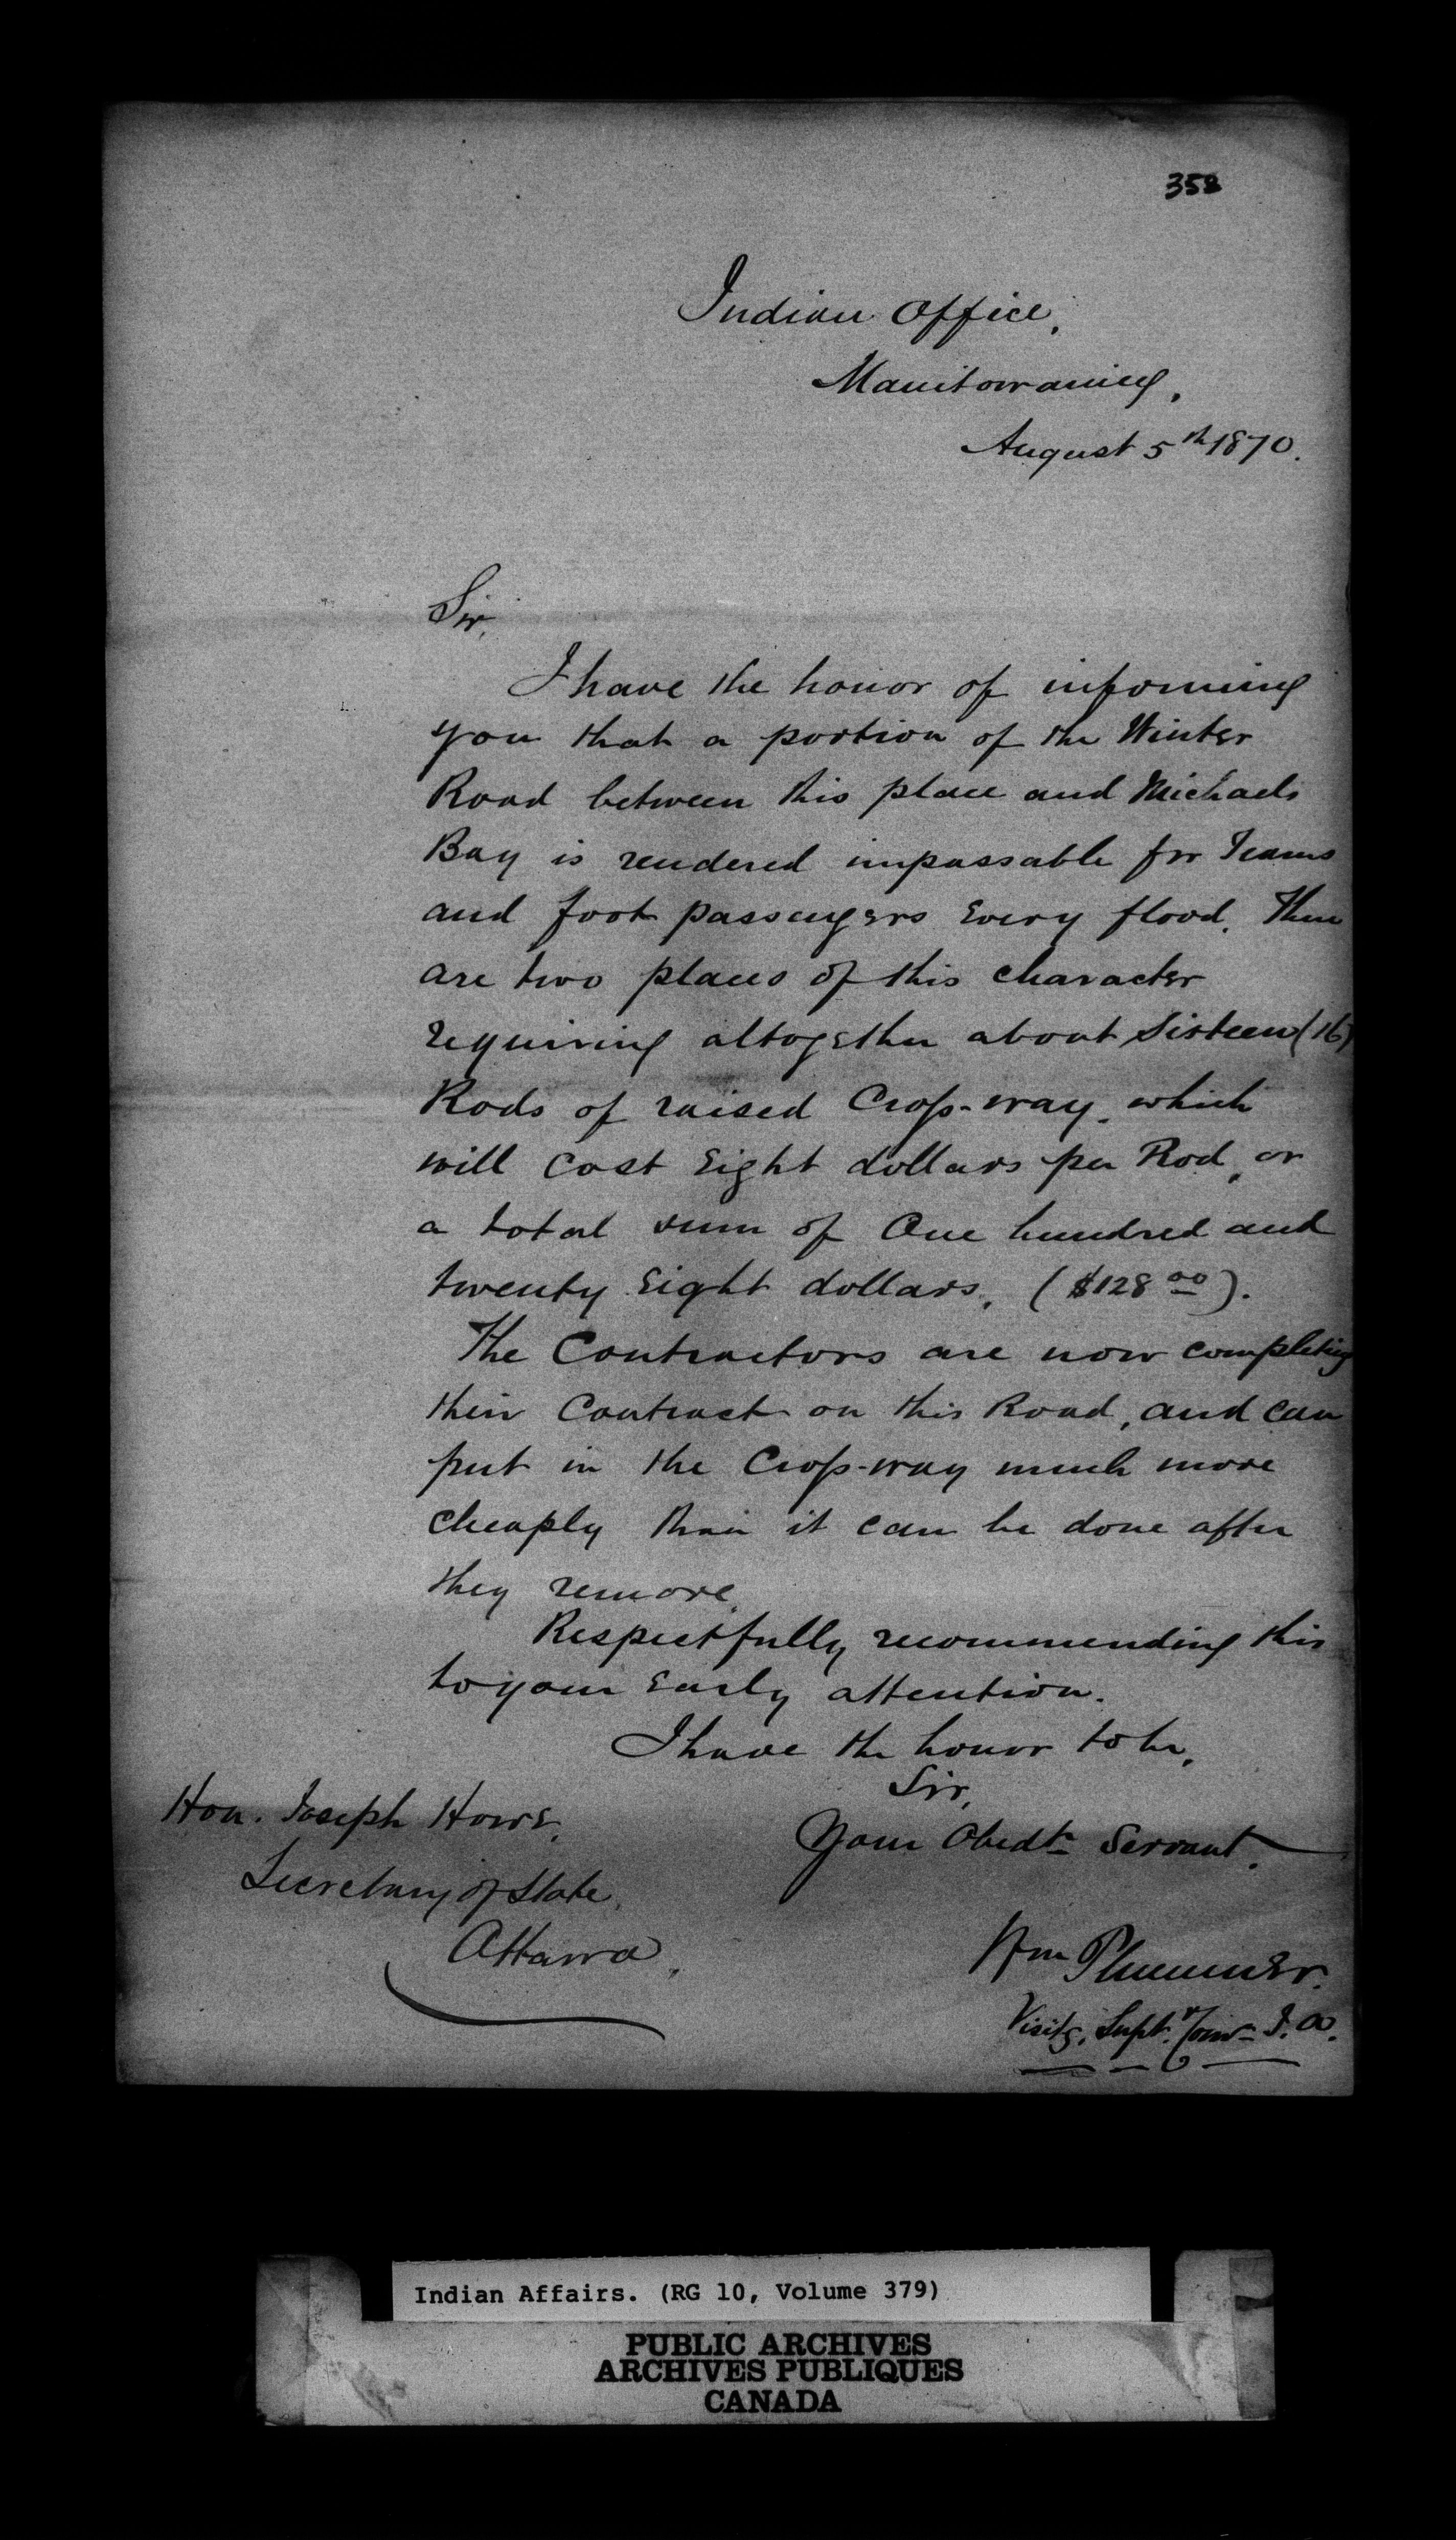 358
Indian Office,
Manitowaning,
August 5th 1870.
Sir,
I have the honor of informing
you that a portion of the Winter
Road between this place and Michaels
Bay is rendered impassable for Teams
and foot passengers every flood. There
are two places of this character
requiring altogether about Sixteen (16)
Rods of raised Cross-way, which
will cost Eight dollars per Rod, or
a total sum of One hundred and
twenty Eight dollars, ($128 00).
The Contractors are now completing
their Contract on this Road, and can
put in the Cross-way much more
cheaply than it can be done after
they remove.
Respectfully recommending this
to your Early attention.
I have the honor to be,
Sir,
Your Obedt Servant.
Hon. Joseph Howe,
Secretary of State,
Ottawa,
Wm Plummer.
Visitg, Supt. & Comr I. A.
Indian Affairs. (RG 10, Volume 379)
PUBLIC ARCHIVES
ARCHIVES PUBLIQUES
CANADA